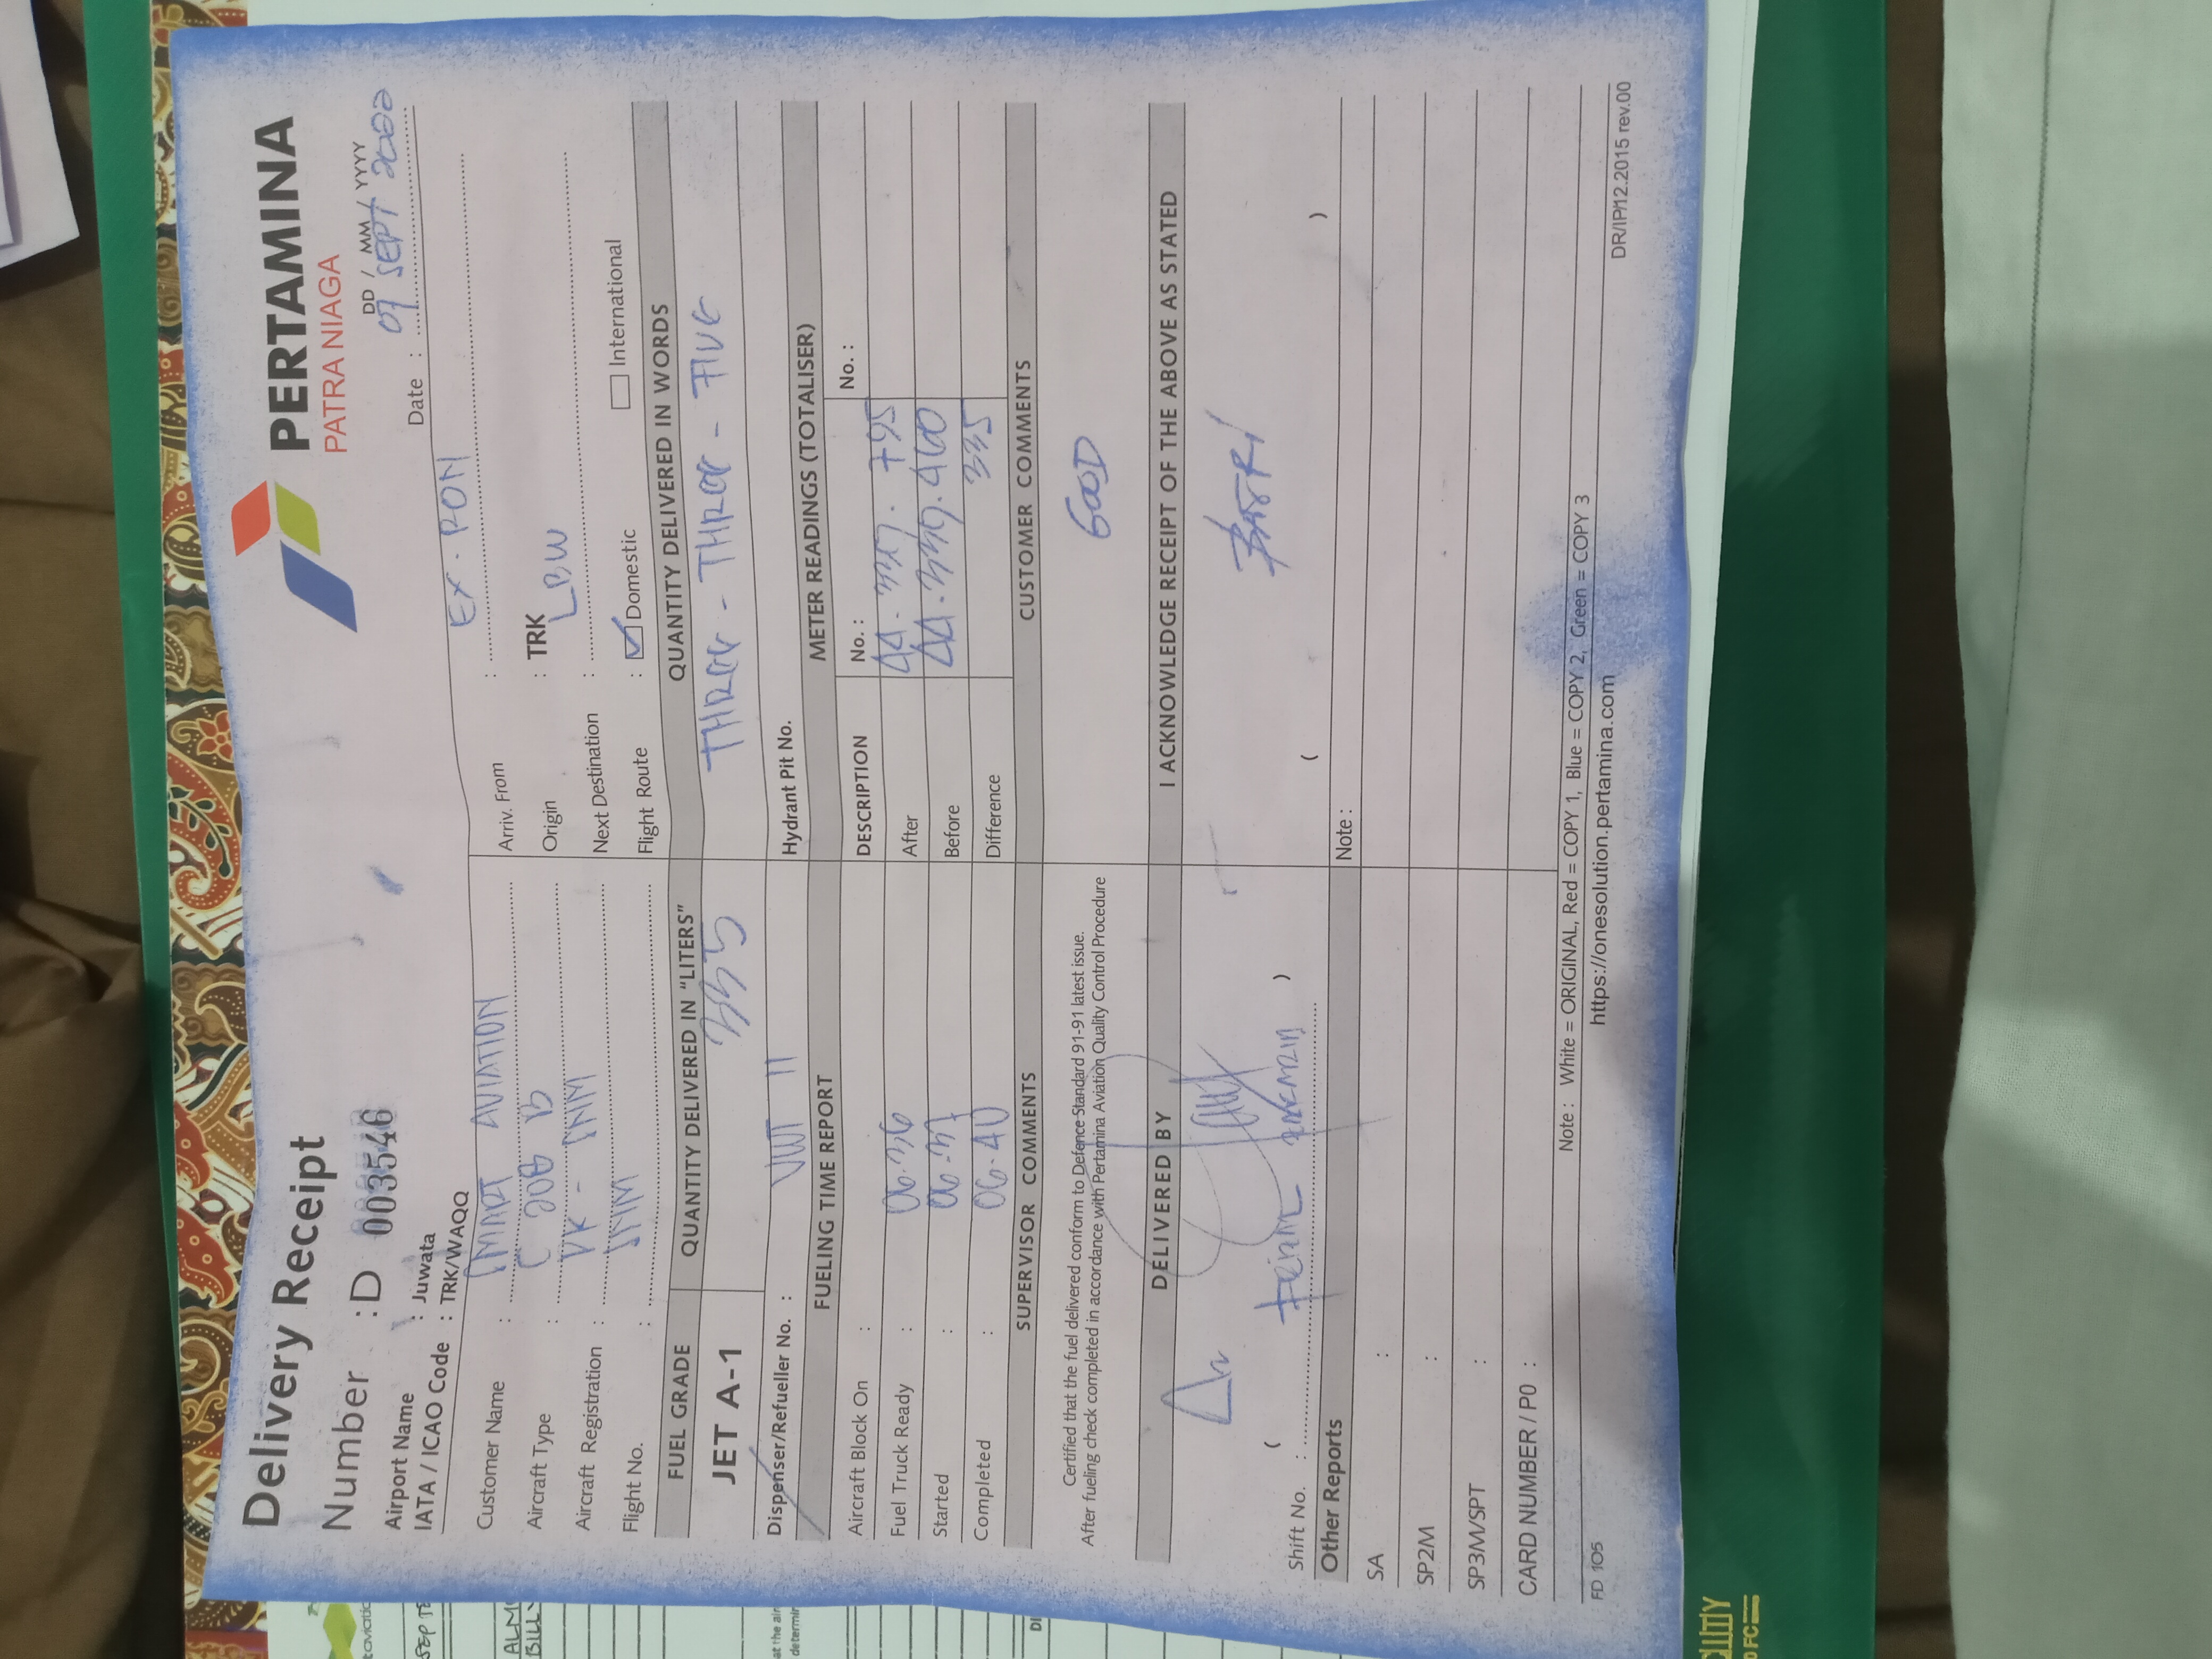 Delivery Receipt
PERTAMINA
PATRA NIAGA
Number : D 003546
DD / MM / YYYY
Date : 07 SEPT 2022
Airport Name : Juwata
IATA / ICAO Code : TRK/WAQQ
Customer Name : SMART AVIATION
Aircraft Type : C 208 B
Aircraft Registration : PK - SNM
Flight No. : SNM
Arriv. From : EX. RON
Origin : TRK
Next Destination : LBW
Flight Route : Domestic International
FUEL GRADE
QUANTITY DELIVERED IN "LITERS"
QUANTITY DELIVERED IN WORDS
JET A-1
335
THREE - THREE - FIVE
Dispenser/Refueller No. : 11
Hydrant Pit No.
FUELING TIME REPORT
METER READINGS (TOTALISER)
DESCRIPTION No. : No. :
Aircraft Block On :
Fuel Truck Ready : 06.36
Started : 06.37
Completed : 06.40
After 795
Before 460
Difference 335
SUPERVISOR COMMENTS
CUSTOMER COMMENTS
Certified that the fuel delivered conform to Defence Standard 91-91 latest issue.
After fueling check completed in accordance with Pertamina Aviation Quality Control Procedure
GOOD
DELIVERED BY
I ACKNOWLEDGE RECEIPT OF THE ABOVE AS STATED
( )
( )
Shift No. :
Other Reports
Note :
SA :
SP2M :
SP3M/SPT :
CARD NUMBER / P0 :
Note : White = ORIGINAL, Red = COPY 1, Blue = COPY 2, Green = COPY 3
FD 105
https://onesolution.pertamina.com
DR/IP/12.2015 rev.00